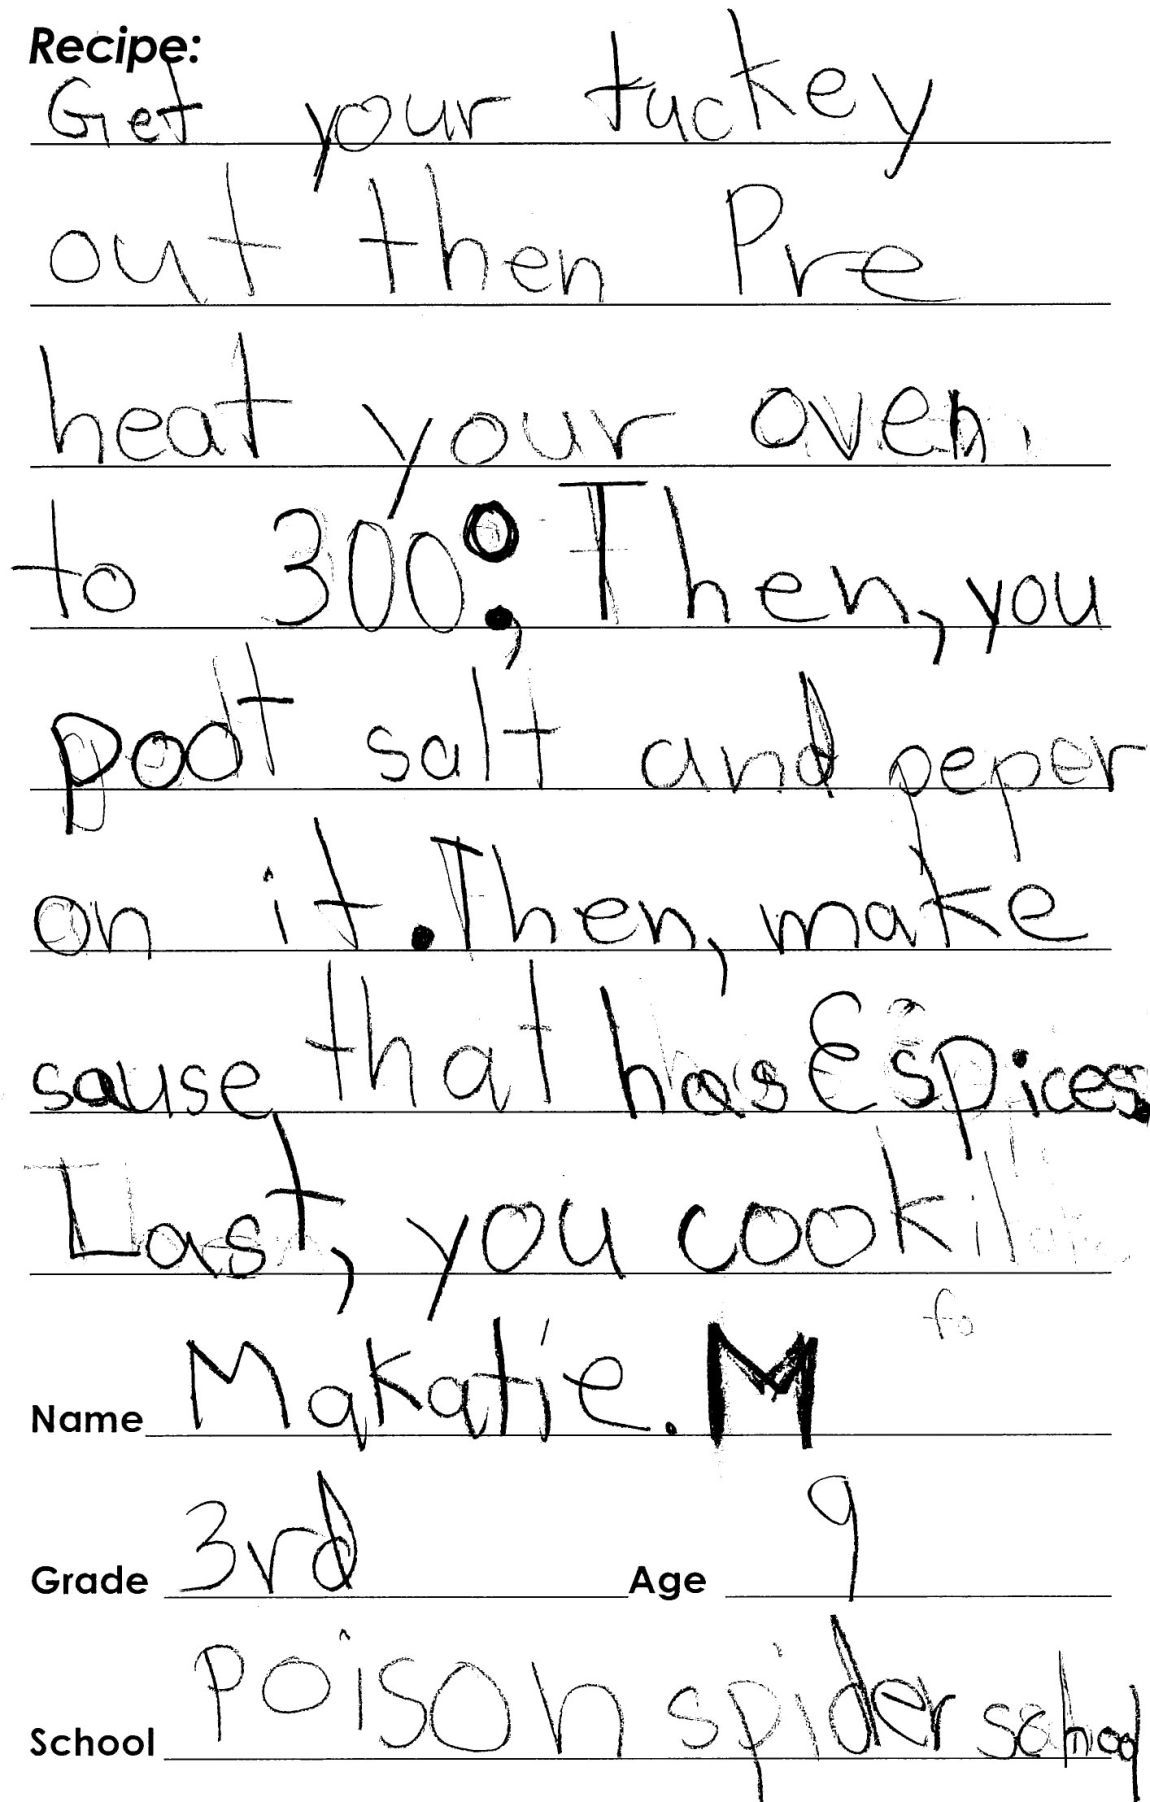 Recipe:
Get your tuckey
out then Pre
heat your oven
to 300°. Then, you
poot salt and peper
on it. Then, make
sause, that has 8 spices.
Last, you cook it
Name Makatie. M
Grade 3rd Age 9
School poison spider school